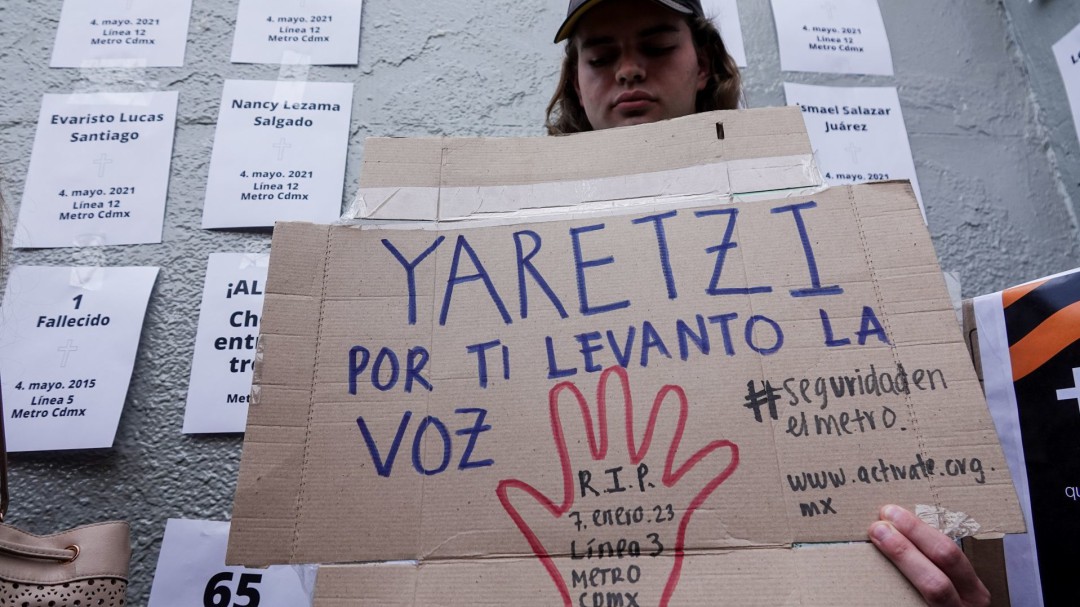 4. mayo. 2021
Línea 12
Metro Cdmx
4. mayo. 2021
Línea 12
Metro Cdmx
4. mayo. 2021
Línea 12
Metro Cdmx
Evaristo Lucas
Santiago
4. mayo. 2021
Línea 12
Metro Cdmx
Nancy Lezama
Salgado
4. mayo. 2021
Línea 12
Metro Cdmx
Ismael Salazar
Juárez
4. mayo. 2021
1
Fallecido
4. mayo. 2015
Línea 5
Metro Cdmx
65
YARETZI
POR TI LEVANTO LA
VOZ
#seguridad en
el metro.
www.activate.org.
mx
R.I.P.
7. enero. 23
Línea 3
METRO
CDMX